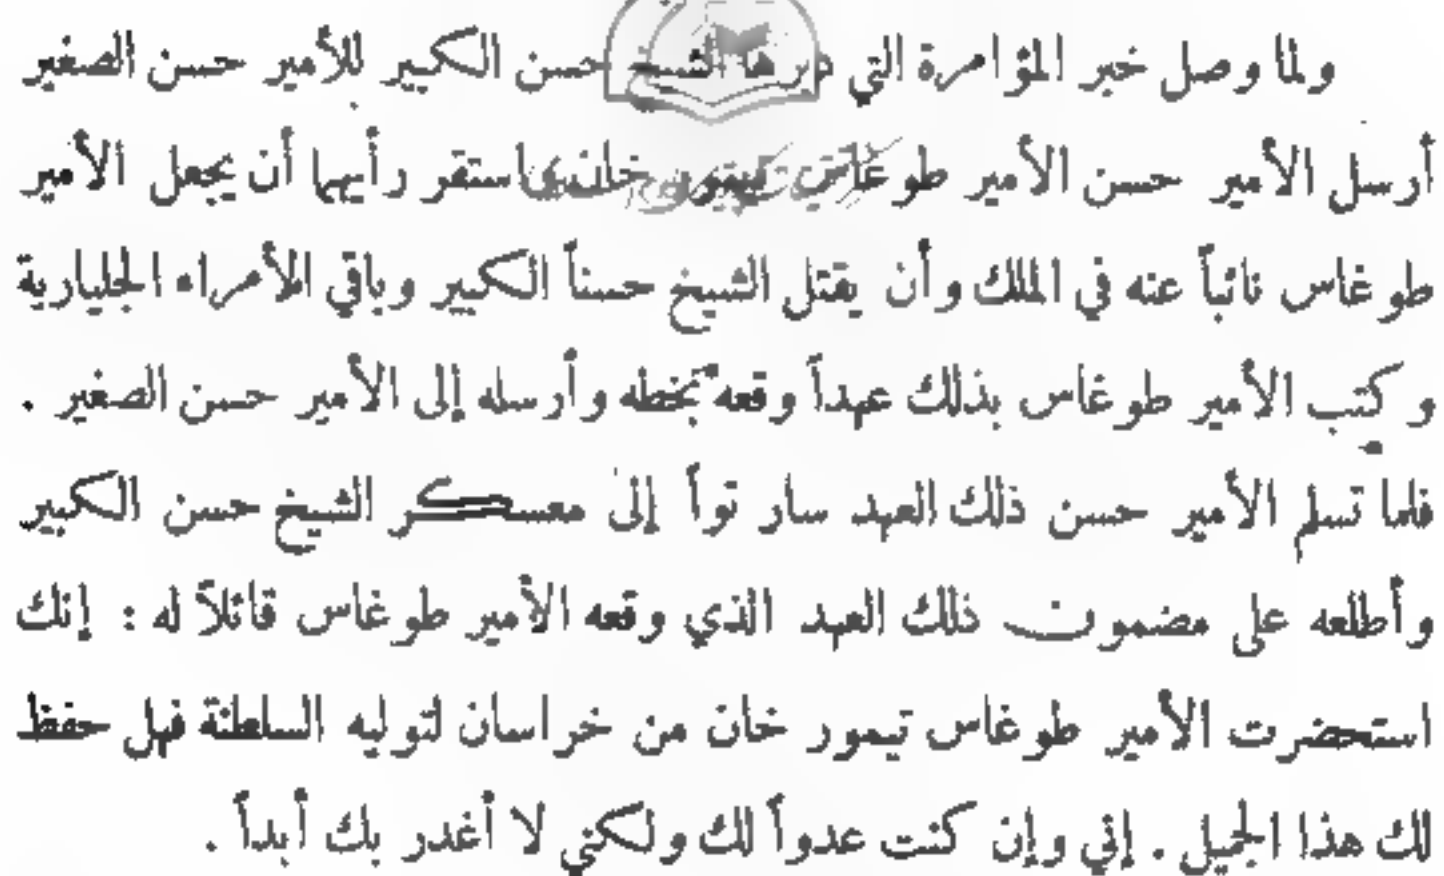 ولما وصل خبر المؤامرة التي دبرها الشيخ حسن الكبير للأمير حسن الصغير
أرسل الأمير حسن الأمير طوغاس تيمور خان استقر رأيهما أن يجعل الأمير
طوغاس نائباً عنه في الملك وأن يقتل الشيخ حسناً الكبير وباقي الأمراء الجليارية
وكتب الأمير طوغاس بذلك عهداً وقعه بخطه وأرسله إلى الأمير حسن الصغير .
فلما تسلم الأمير حسن ذلك العهد سار تواً إلى معسكر الشيخ حسن الكبير
وأطلعه على مضمون ذلك العهد الذي وقعه الأمير طوغاس قائلاً له : إنك
استحضرت الأمير طوغاس تيمور خان من خراسان لتوليه السلطنة فهل حفظ
لك هذا الجميل . إني وإن كنت عدواً لك ولكني لا أغدر بك أبداً .